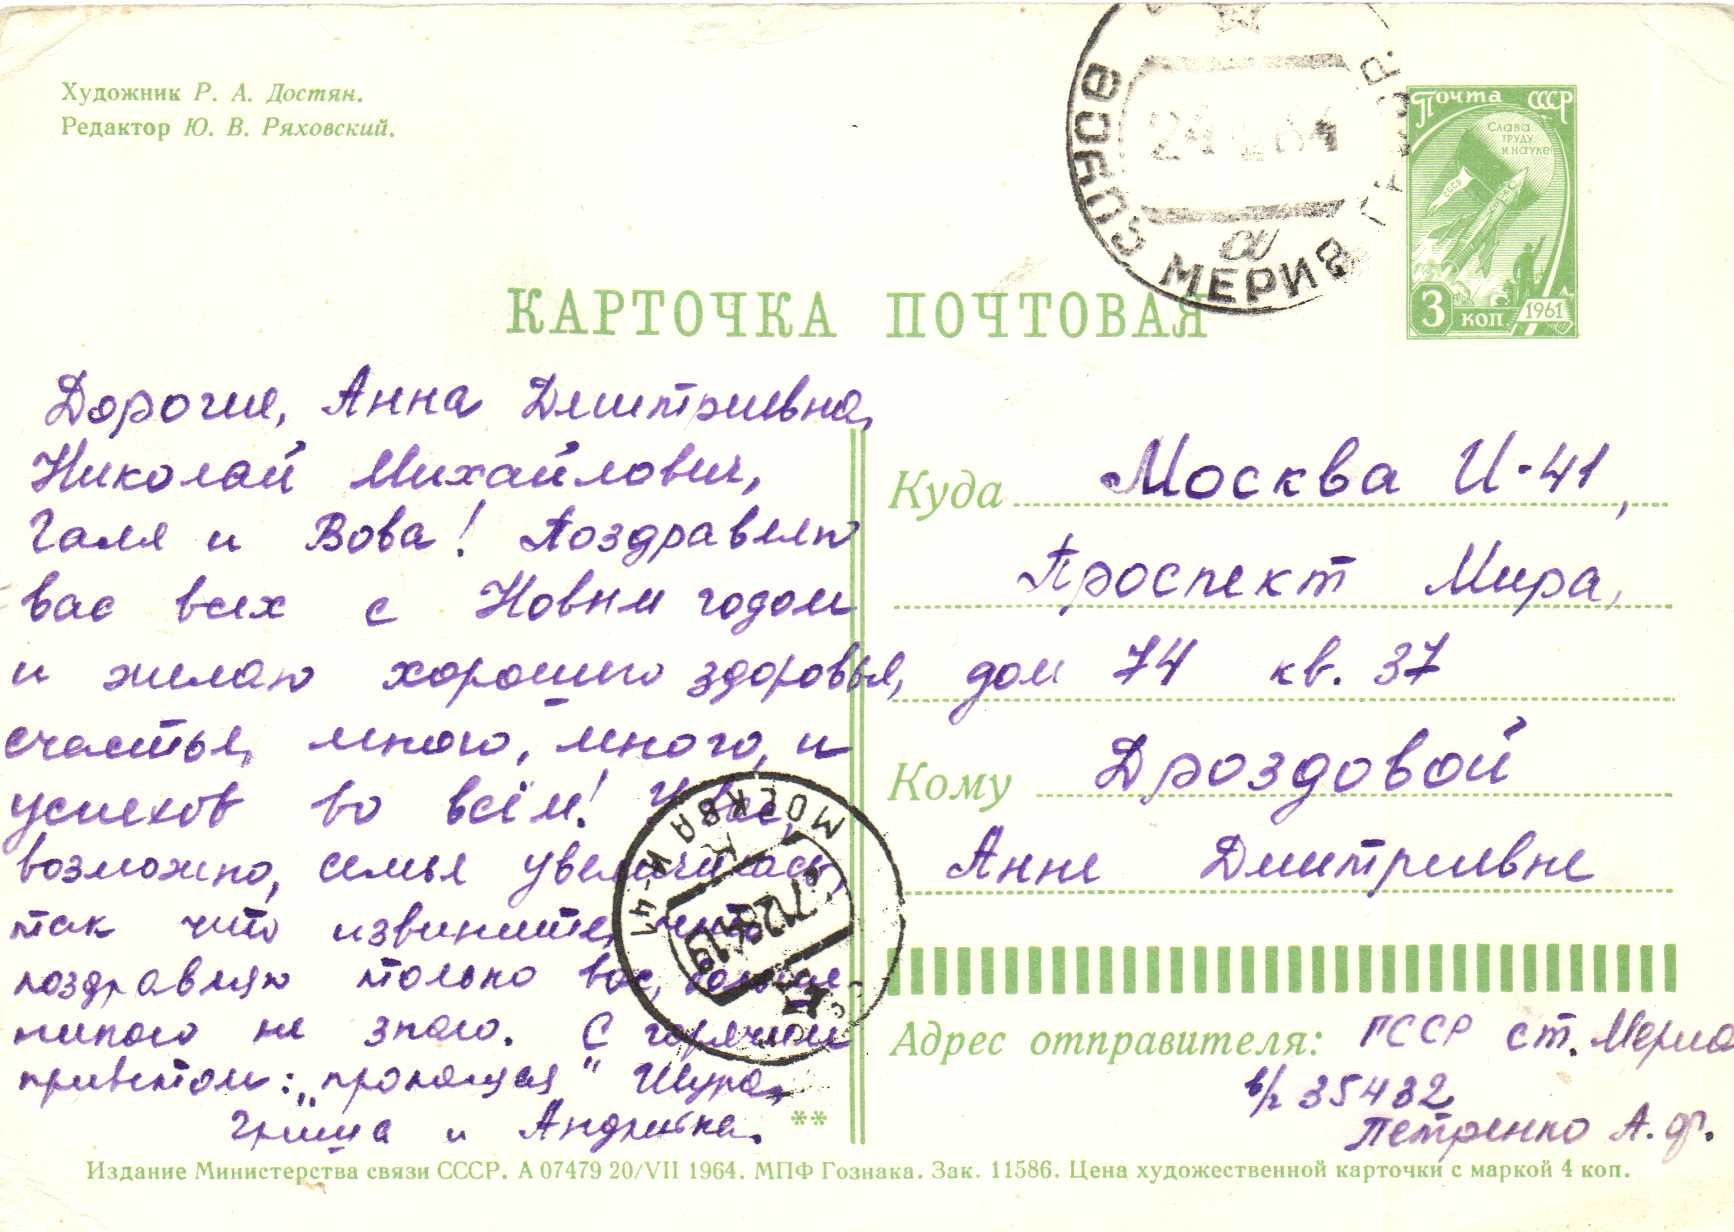 Художник Р. А. Достян.
Редактор Ю. В. Ряховский.
МЕРИЯ
24 64
ПОЧТА СССР
СЛАВА
ТРУДУ
И НАУКЕ
СССР
3 КОП 1961
КАРТОЧКА ПОЧТОВАЯ
Дорогие, Анна Дмитриевна,
Николай Михайлович,
Галя и Вова! Поздравляю
вас всех с Новым годом
и желаю хорошего здоровья,
счастья, много, много, и
успехов во всём! У вас,
возможно, семья увеличилась,
так что извините, что
поздравляю только вас, больше
никого не знаю. С горячим
приветом: „пропащая" Шура,
Гриша и Андрейка.
**
МОСКВА И-41
Куда Москва И-41,
Проспект Мира,
дом 74 кв. 37
Кому Дроздовой
Анне Дмитриевне
Адрес отправителя: ГССР ст. Мериа
в/ч 35432
Петренко А. Ф.
Издание Министерства связи СССР. А 07479 20/VII 1964. МПФ Гознака. Зак. 11586. Цена художественной карточки с маркой 4 коп.